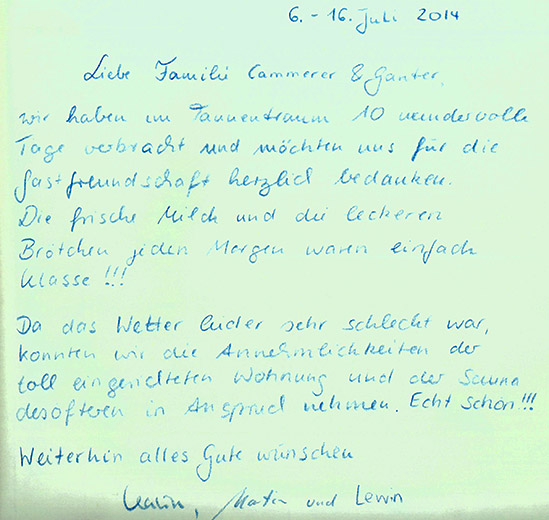 6. - 16. Juli 2014
Liebe Familie Cammerer & Ganter,
wir haben im Tannentraum 10 wundervolle
Tage verbracht und möchten uns für die
Gastfreundschaft herzlich bedanken.
Die frische Milch und die leckeren
Brötchen jeden Morgen waren einfach
klasse!!!
Da das Wetter leider sehr schlecht war,
konnten wir die Annehmlichkeiten der
toll eingerichteten Wohnung und der Sauna
desöfteren in Anspruch nehmen. Echt schön!!!
Weiterhin alles Gute wünschen
Martin und Lewin